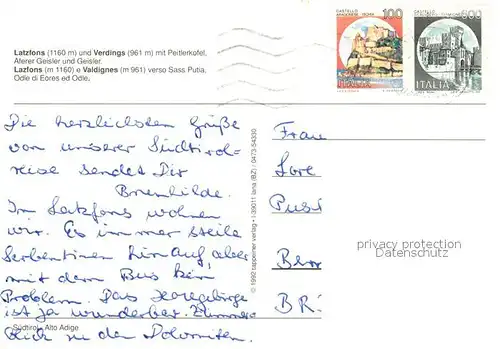 Latzfons (1160 m) und Verdings (961 m) mit Peitlerkofel,
Aferer Geisler und Geisler.
Lazfons (m 1160) e Valdignes (m 961) verso Sass Putia,
Odle di Eores ed Odle.
CASTELLO
100
600
ITALIA
Die herzlichsten Grüße
von unserer Südtirol=
reise sendet Dir
Brunhilde.
In Latzfons wohnen
wir. Es immer steile
Serbentinen hinauf, aber
mit dem Bus kein
Problem. Das Hochgebirge
ist ja wunderbar. Zimmer
Blick zu den Dolomiten.
Südtirol - Alto Adige
© 1992 tappeiner verlag • I-39011 lana (BZ) / 0473-54330
Frau
Lore
BR:
privacy protection
Datenschutz